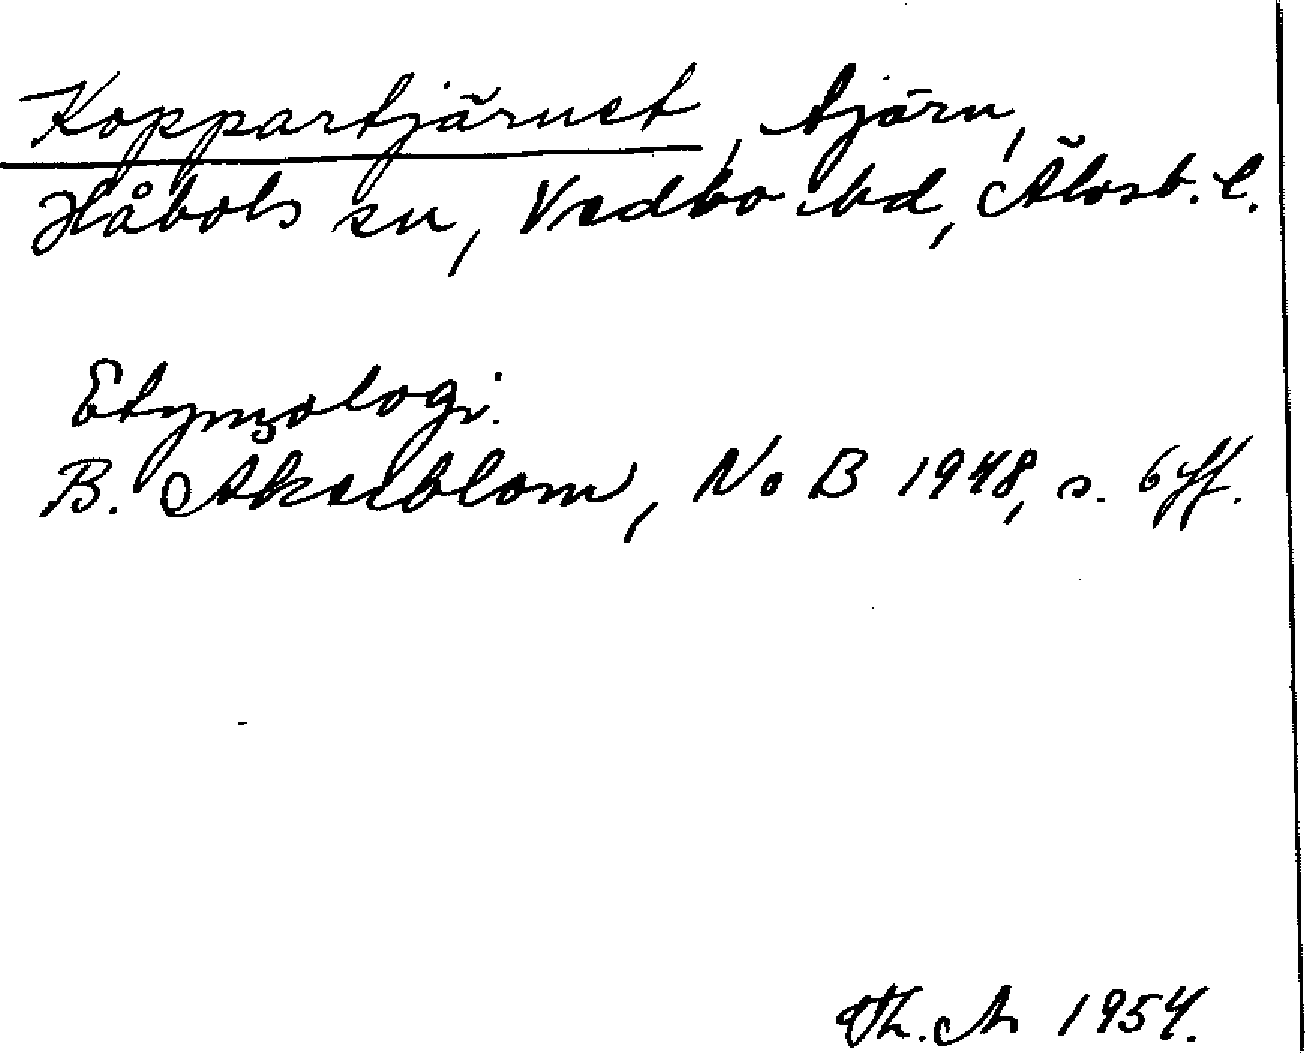 Koppartjärnet, tjärn,
Håbols sn, Vedbo hd, Älvsb. l.
Etymologi.
B. Akseblom, NoB 1948, s. 6 ff.
Th. A 1954.